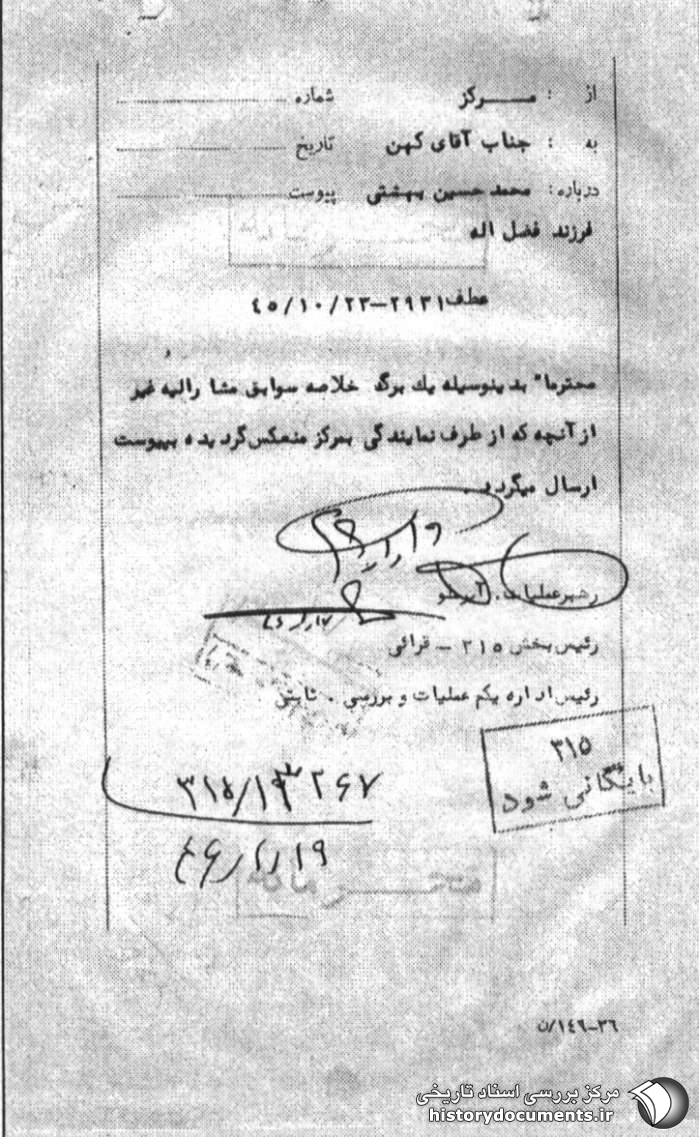 از : مــركز شماره
به : جناب آقای کهن تاریخ
درباره: محمد حسین بهشتی پیوست
فرزند فضل اله
عطف ۲۹۳۱-۴۵/۱۰/۲۳
محترما" بدینوسیله یك برگ خلاصه سوابق مشا رالیه غیر
از آنچه که از طرف نمایندگی بمرکز منعکس گردیده بپیوست
ارسال میگردد.
رهبر عملیات.
رئیس بخش ۳۱۵ - قرائی
رئیس اداره یکم عملیات و بررسی . ثابتی
۳۱۵
بایگانی شود
۴۶/۱/۱۹
۳۶-۱۴۶/ن
مرکز بررسی اسناد تاریخی
historydocuments.ir